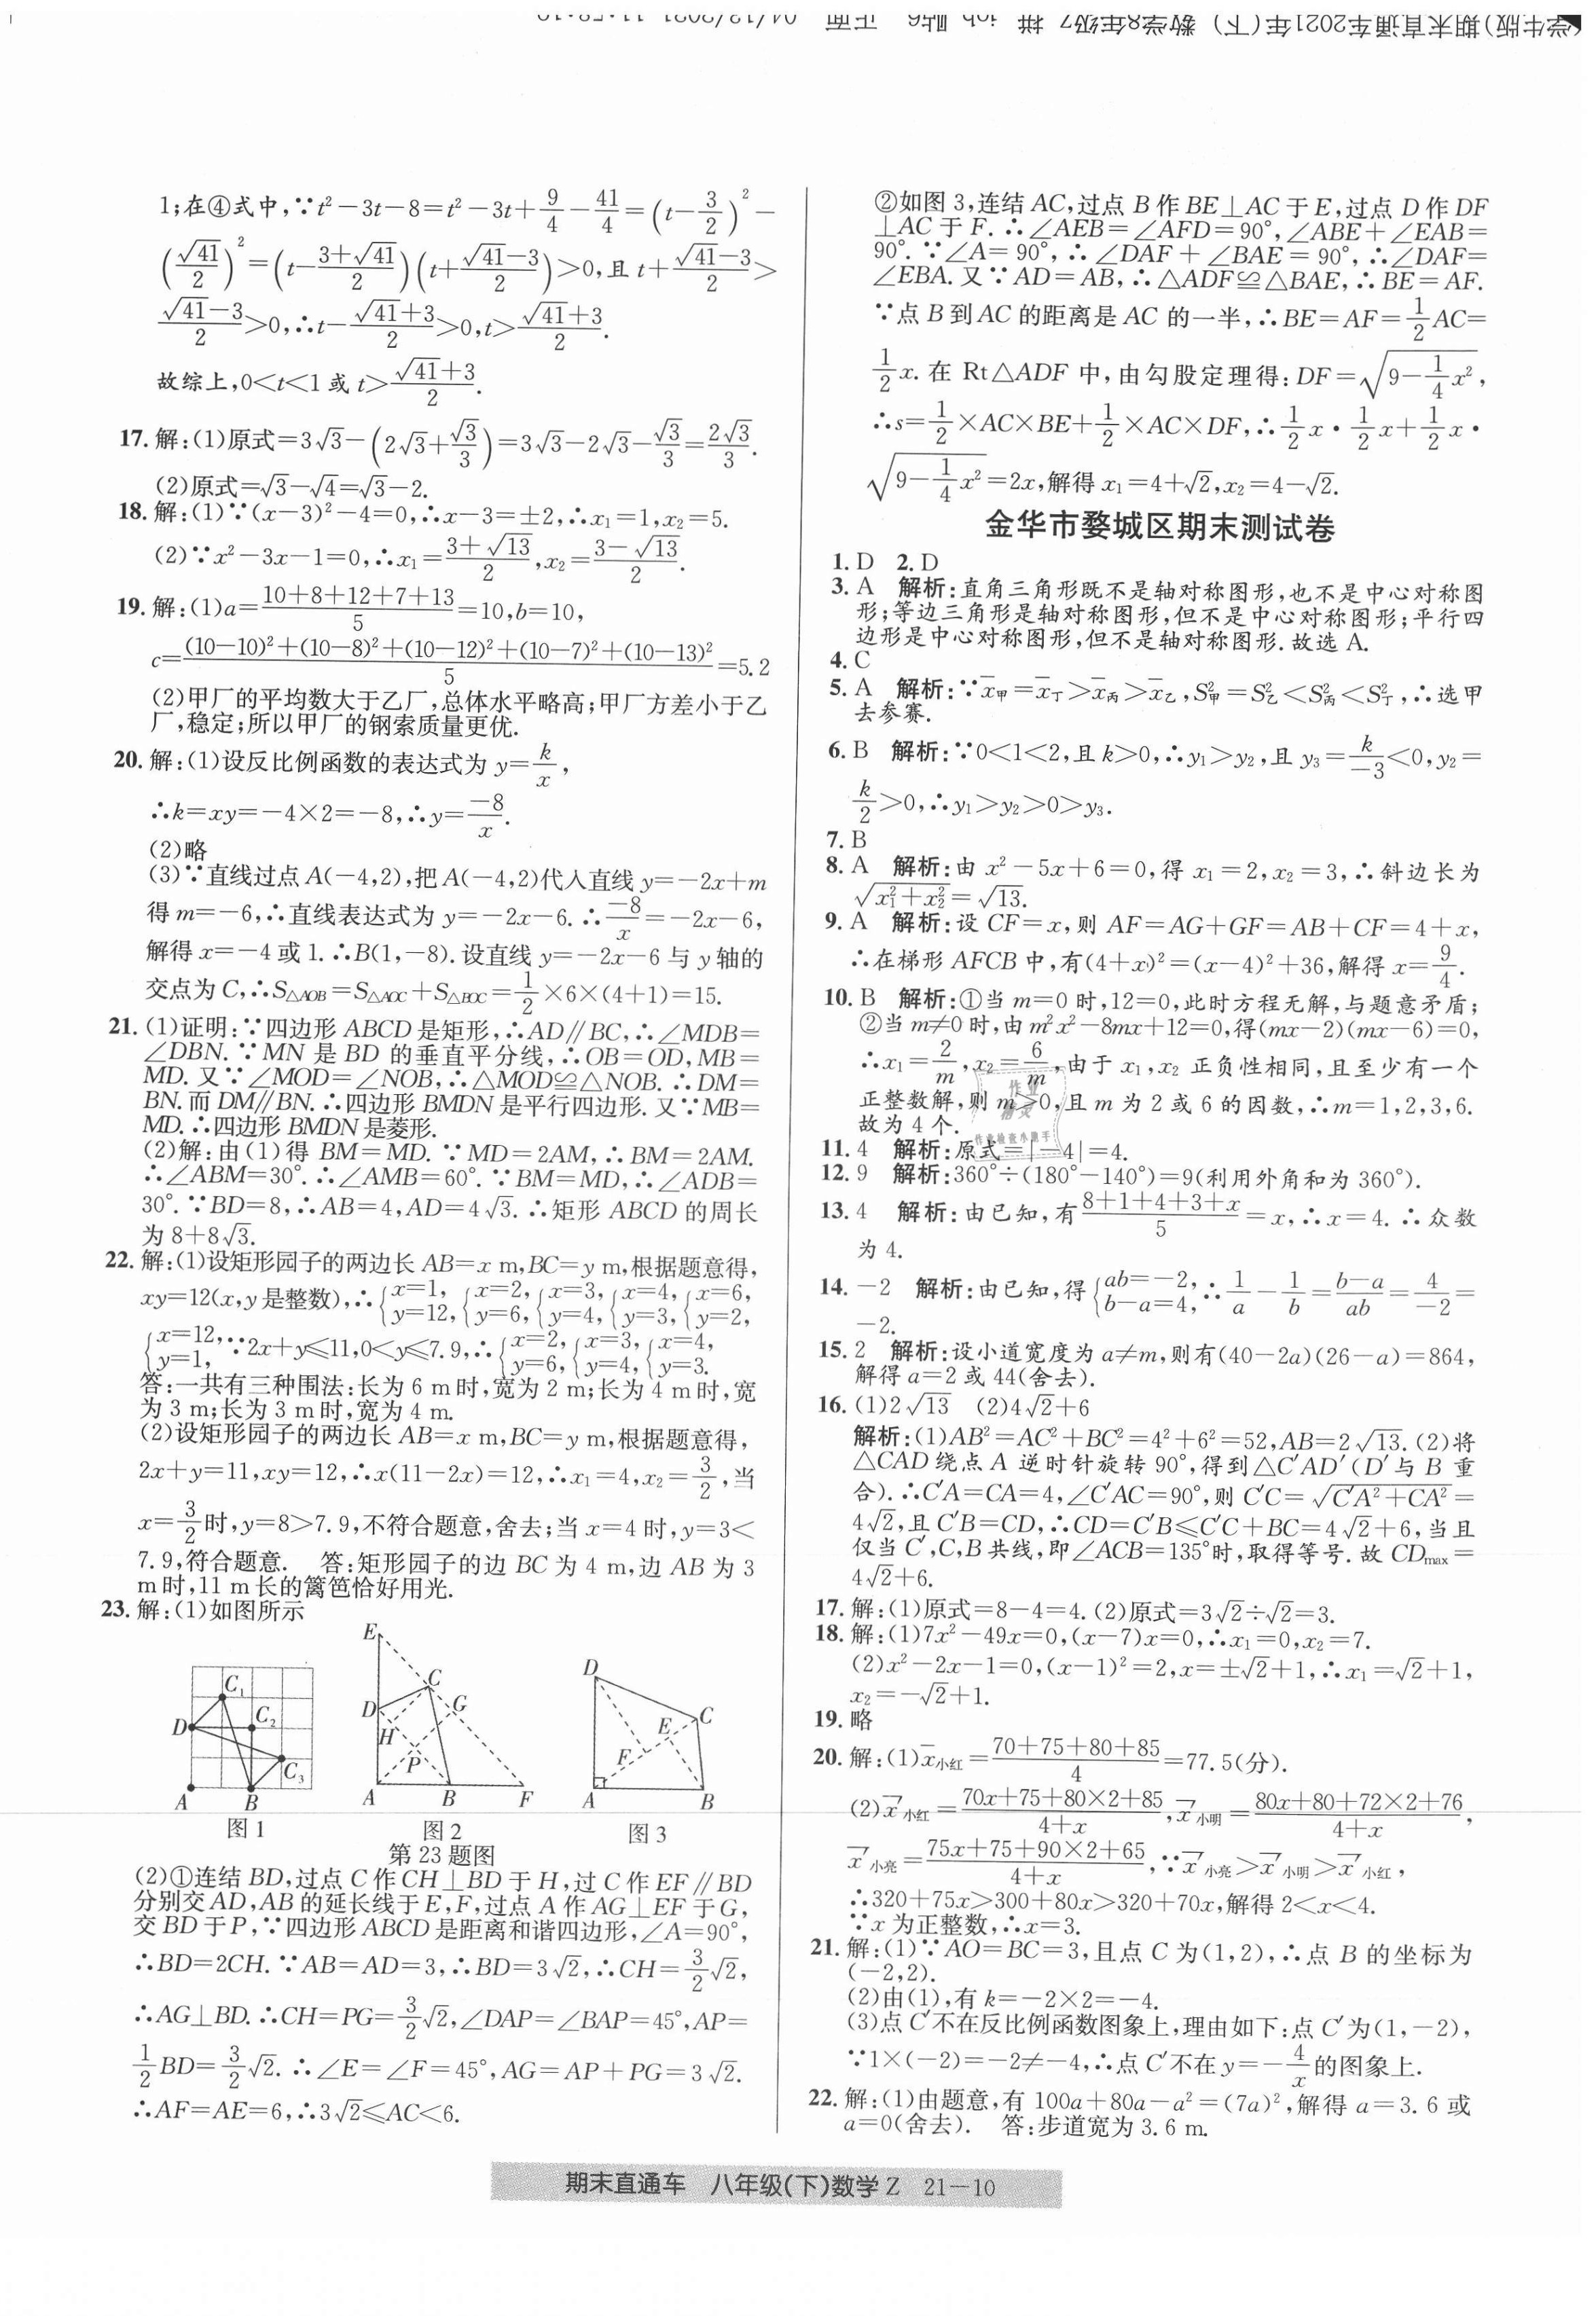 (学生版)期末直通车2021年(下) 数学8年级7 拼 job 贴6 正面 04/12/2021 11:58:12
1;在④式中,∵t²-3t-8=t²-3t+9/4-41/4=(t-3/2)²-
(√41/2)²=(t-(3+√41)/2)(t+(√41-3)/2)>0,且 t+(√41-3)/2>
(√41-3)/2>0,∴t-(√41+3)/2>0,t>(√41+3)/2.
故综上,0<t<1 或 t>(√41+3)/2.
17.解:(1)原式=3√3-(2√3+√3/3)=3√3-2√3-√3/3=2√3/3.
(2)原式=√3-√4=√3-2.
18.解:(1)∵(x-3)²-4=0,∴x-3=±2,∴x₁=1,x₂=5.
(2)∵x²-3x-1=0,∴x₁=(3+√13)/2,x₂=(3-√13)/2.
19.解:(1)a=(10+8+12+7+13)/5=10,b=10,
c=((10-10)²+(10-8)²+(10-12)²+(10-7)²+(10-13)²)/5=5.2
(2)甲厂的平均数大于乙厂,总体水平略高;甲厂方差小于乙
厂,稳定;所以甲厂的钢索质量更优.
20.解:(1)设反比例函数的表达式为 y=k/x,
∴k=xy=-4×2=-8,∴y=-8/x.
(2)略
(3)∵直线过点 A(-4,2),把 A(-4,2)代入直线 y=-2x+m
得 m=-6,∴直线表达式为 y=-2x-6.∴-8/x=-2x-6,
解得 x=-4 或 1.∴B(1,-8).设直线 y=-2x-6 与 y 轴的
交点为 C,∴S△AOB=S△AOC+S△BOC=1/2×6×(4+1)=15.
21.(1)证明:∵四边形 ABCD 是矩形,∴AD∥BC,∴∠MDB=
∠DBN.∵MN 是 BD 的垂直平分线,∴OB=OD,MB=
MD.又∵∠MOD=∠NOB,∴△MOD≌△NOB.∴DM=
BN.而 DM∥BN.∴四边形 BMDN 是平行四边形.又∵MB=
MD.∴四边形 BMDN 是菱形.
(2)解:由(1)得 BM=MD.∵MD=2AM,∴BM=2AM.
∴∠ABM=30°.∴∠AMB=60°.∵BM=MD,∴∠ADB=
30°.∵BD=8,∴AB=4,AD=4√3.∴矩形 ABCD 的周长
为 8+8√3.
22.解:(1)设矩形园子的两边长 AB=x m,BC=y m,根据题意得,
xy=12(x,y 是整数),∴{x=1,y=12,{x=2,y=6,{x=3,y=4,{x=4,y=3,{x=6,y=2,
{x=12,y=1,∵2x+y≤11,0<y≤7.9,∴{x=2,y=6,{x=3,y=4,{x=4,y=3.
答:一共有三种围法:长为 6 m 时,宽为 2 m;长为 4 m 时,宽
为 3 m;长为 3 m 时,宽为 4 m.
(2)设矩形园子的两边长 AB=x m,BC=y m,根据题意得,
2x+y=11,xy=12,∴x(11-2x)=12,∴x₁=4,x₂=3/2,当
x=3/2时,y=8>7.9,不符合题意,舍去;当 x=4 时,y=3<
7.9,符合题意. 答:矩形园子的边 BC 为 4 m,边 AB 为 3
m 时,11 m 长的篱笆恰好用光.
23.解:(1)如图所示
C₁ C₂ D C₃ A B
图 1
E C D G H P A B F
图 2
D C E F A B
图 3
第 23 题图
(2)①连结 BD,过点 C 作 CH⊥BD 于 H,过 C 作 EF∥BD
分别交 AD,AB 的延长线于 E,F,过点 A 作 AG⊥EF 于 G,
交 BD 于 P,∵四边形 ABCD 是距离和谐四边形,∠A=90°,
∴BD=2CH.∵AB=AD=3,∴BD=3√2,∴CH=3/2√2,
∴AG⊥BD.∴CH=PG=3/2√2,∠DAP=∠BAP=45°,AP=
1/2BD=3/2√2.∴∠E=∠F=45°,AG=AP+PG=3√2.
∴AF=AE=6,∴3√2≤AC<6.
②如图 3,连结 AC,过点 B 作 BE⊥AC 于 E,过点 D 作 DF
⊥AC 于 F.∴∠AEB=∠AFD=90°,∠ABE+∠EAB=
90°.∵∠A=90°,∴∠DAF+∠BAE=90°,∴∠DAF=
∠EBA.又∵AD=AB,∴△ADF≌△BAE,∴BE=AF.
∵点 B 到 AC 的距离是 AC 的一半,∴BE=AF=1/2AC=
1/2x.在 Rt△ADF 中,由勾股定理得:DF=√(9-1/4x²),
∴s=1/2×AC×BE+1/2×AC×DF,∴1/2x·1/2x+1/2x·
√(9-1/4x²)=2x,解得 x₁=4+√2,x₂=4-√2.
金华市婺城区期末测试卷
1.D 2.D
3.A 解析:直角三角形既不是轴对称图形,也不是中心对称图
形;等边三角形是轴对称图形,但不是中心对称图形;平行四
边形是中心对称图形,但不是轴对称图形.故选 A.
4.C
5.A 解析:∵x̄甲=x̄丁>x̄丙>x̄乙,S²甲=S²乙<S²丙<S²丁,∴选甲
去参赛.
6.B 解析:∵0<1<2,且 k>0,∴y₁>y₂,且 y₃=k/-3<0,y₂=
k/2>0,∴y₁>y₂>0>y₃.
7.B
8.A 解析:由 x²-5x+6=0,得 x₁=2,x₂=3,∴斜边长为
√(x₁²+x₂²)=√13.
9.A 解析:设 CF=x,则 AF=AG+GF=AB+CF=4+x,
∴在梯形 AFCB 中,有(4+x)²=(x-4)²+36,解得 x=9/4.
10.B 解析:①当 m=0 时,12=0,此时方程无解,与题意矛盾;
②当 m≠0 时,由 m²x²-8mx+12=0,得(mx-2)(mx-6)=0,
∴x₁=2/m,x₂=6/m,由于 x₁,x₂ 正负性相同,且至少有一个
正整数解,则 m>0,且 m 为 2 或 6 的因数,∴m=1,2,3,6.
故为 4 个.
11.4 解析:原式=|-4|=4.
12.9 解析:360°÷(180°-140°)=9(利用外角和为 360°).
13.4 解析:由已知,有(8+1+4+3+x)/5=x,∴x=4.∴众数
为 4.
14.-2 解析:由已知,得{ab=-2,b-a=4,∴1/a-1/b=(b-a)/ab=4/-2=
-2.
15.2 解析:设小道宽度为 a≠m,则有(40-2a)(26-a)=864,
解得 a=2 或 44(舍去).
16.(1)2√13 (2)4√2+6
解析:(1)AB²=AC²+BC²=4²+6²=52,AB=2√13.(2)将
△CAD 绕点 A 逆时针旋转 90°,得到△C′AD′(D′与 B 重
合).∴C′A=CA=4,∠C′AC=90°,则 C′C=√(C′A²+CA²)=
4√2,且 C′B=CD,∴CD=C′B≤C′C+BC=4√2+6,当且
仅当 C′,C,B 共线,即∠ACB=135°时,取得等号.故 CDmax=
4√2+6.
17.解:(1)原式=8-4=4.(2)原式=3√2÷√2=3.
18.解:(1)7x²-49x=0,(x-7)x=0,∴x₁=0,x₂=7.
(2)x²-2x-1=0,(x-1)²=2,x=±√2+1,∴x₁=√2+1,
x₂=-√2+1.
19.略
20.解:(1)x̄小红=(70+75+80+85)/4=77.5(分).
(2)x̄′小红=(70x+75+80×2+85)/(4+x),x̄′小明=(80x+80+72×2+76)/(4+x),
x̄′小亮=(75x+75+90×2+65)/(4+x),∵x̄′小亮>x̄′小明>x̄′小红,
∴320+75x>300+80x>320+70x,解得 2<x<4.
∵x 为正整数,∴x=3.
21.解:(1)∵AO=BC=3,且点 C 为(1,2),∴点 B 的坐标为
(-2,2).
(2)由(1),有 k=-2×2=-4.
(3)点 C′不在反比例函数图象上,理由如下:点 C′为(1,-2),
∵1×(-2)=-2≠-4,∴点 C′不在 y=-4/x的图象上.
22.解:(1)由题意,有 100a+80a-a²=(7a)²,解得 a=3.6 或
a=0(舍去). 答:步道宽为 3.6 m.
期末直通车 八年级(下)数学 Z 21-10